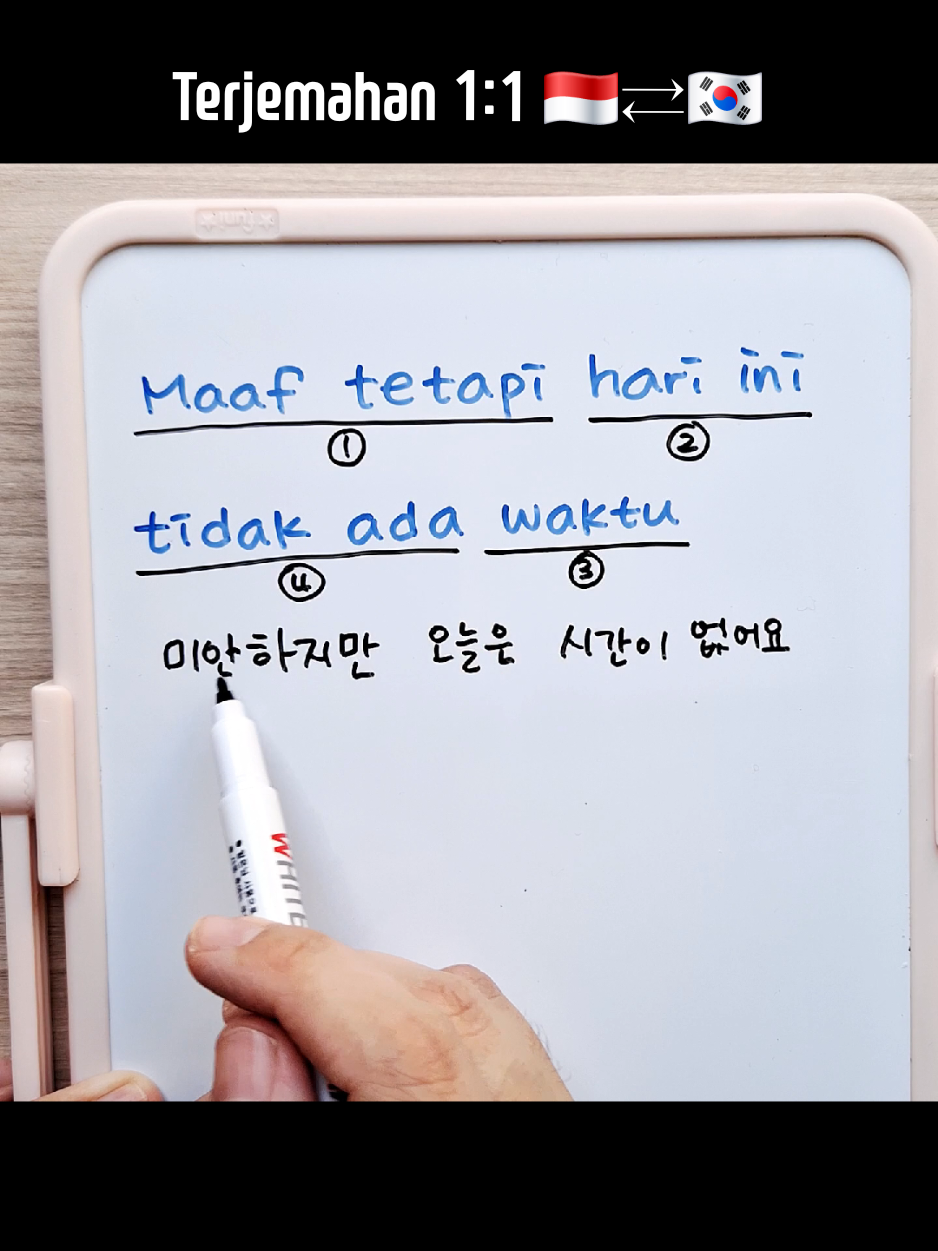 Terjemahan 1:1
Maaf tetapi hari ini
① ②
tidak ada waktu
④ ③
미안하지만 오늘은 시간이 없어요